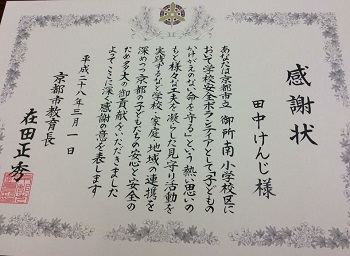 感謝状
田中けんじ様
あなたは京都市立御所南小学校区に
おいて学校安全ボランティアとして「子どもの
かけがえのない命を守る」という熱い思いの
もと様々な工夫を凝らした見守り活動を
実践するなど学校・家庭・地域の連携を
深めつつ京都の子どもたちの安心と安全の
ため多大の御貢献をいただきました
よってここに深く感謝の意を表します
平成二十八年三月一日
京都市教育長
在田正秀